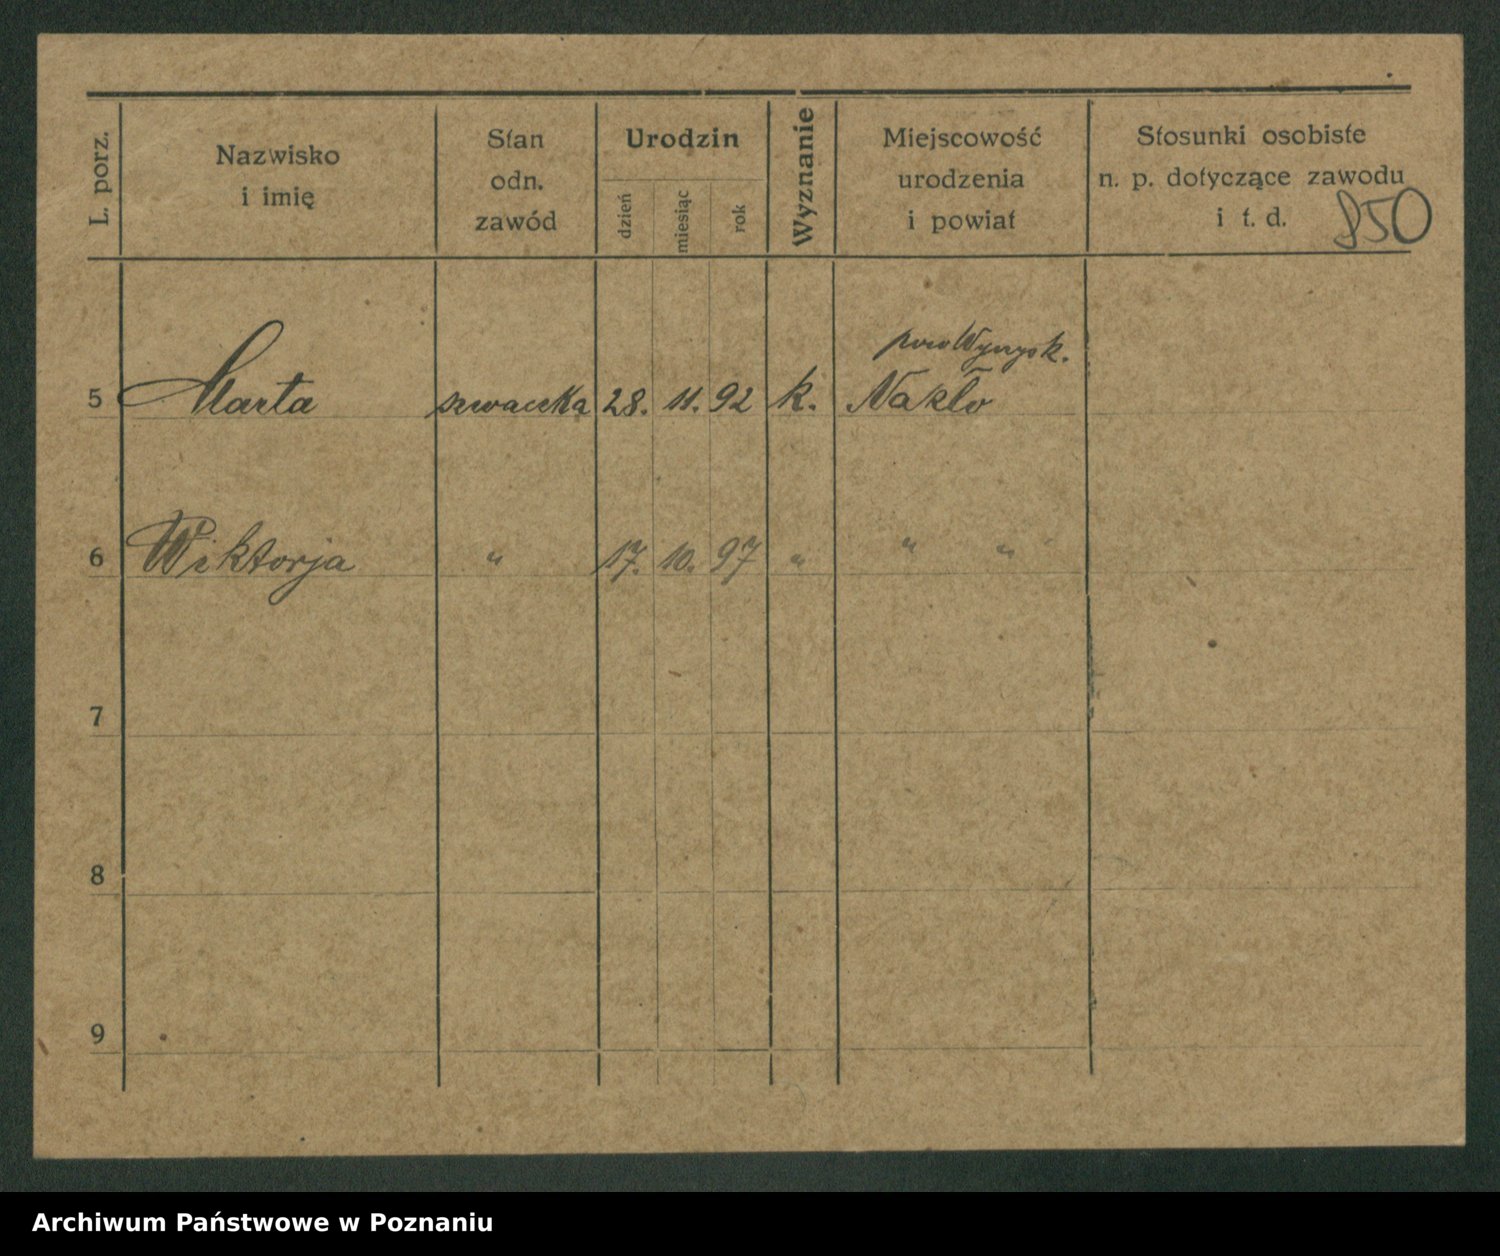 L. porz. Nazwisko i imię Stan odn. zawód Urodzin dzień miesiąc rok Wyznanie Miejscowość urodzenia i powiat Stosunki osobiste n. p. dotyczące zawodu i t. d.
850
pow Wyrzysk.
5 Marta szwaczka 28. 11. 92 k. Nakło
6 Wiktorja " 17. 10. 97 " " "
7
8
9
Archiwum Państwowe w Poznaniu